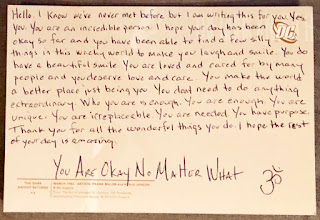 Hello, I know we've never met before but I am writing this for you. Yes
you. You are an incredible person. I hope your day has been
okay so far and you have been able to find a few silly
things in this wacky world to make you laugh and smile. You do
have a beautiful smile. You are loved and cared for by many
people and you deserve love and care. You make the world
a better place just being you. You dont need to do anything
extraordinary. Who you are is enough. You are enough. You are
unique. You are irreplaceable. You are needed. You have purpose.
Thank you for all the wonderful things you do. I hope the rest
of your day is amazing.
You Are Okay No Matter What
ॐ